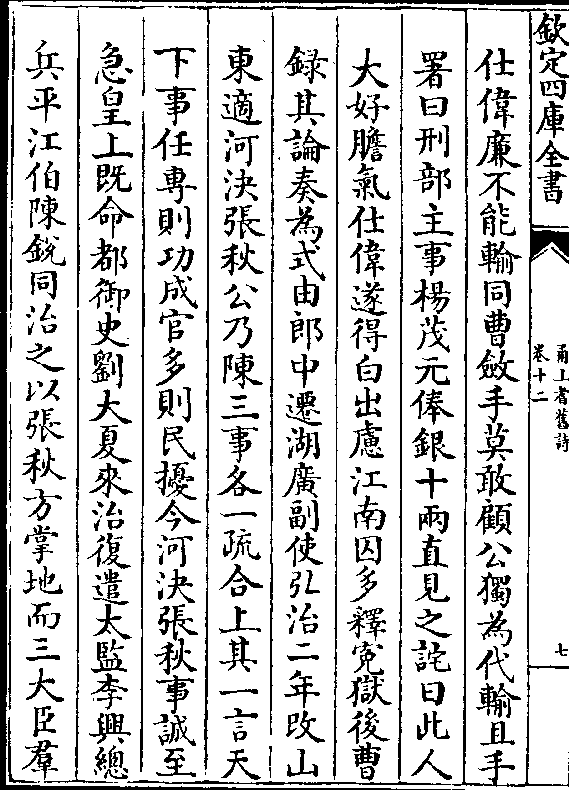 欽定四庫全書
甬上耆舊詩
卷十二
七
仕偉廉不能輸同曹斂手莫敢顧公獨為代輸且手
署曰刑部主事楊茂元俸銀十兩直見之詫曰此人
大好膽氣仕偉遂得白出慮江南囚多釋寃獄後曹
録其論奏為式由郎中遷湖廣副使弘治二年改山
東適河決張秋公乃陳三事各一疏合上其一言天
下事任專則功成官多則民擾今河決張秋事誠至
急皇上既命都御史劉大夏來治復遣太監李興總
兵平江伯陳銳同治之以張秋方掌地而三大臣羣